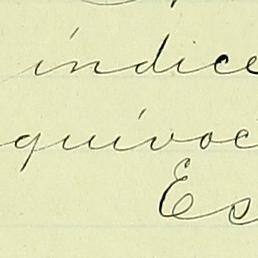 índice
quivoc
Es